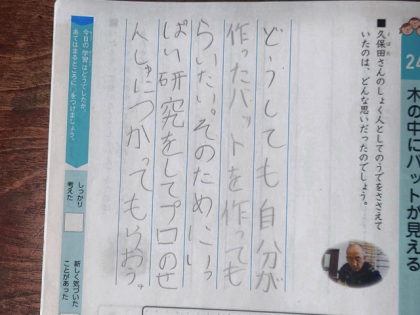 24
木の中にバットが見える
■久保田さんのしょく人としてのうでをささえて
いたのは、どんな思いだったのでしょう。
どうしても自分が
作ったバットを作っても
らいたい。そのためにいっ
ぱい研究をしてプロのせ
んしゅにつかってもらおう。
今日の学習はどうでしたか。
あてはまるところに、○をつけましょう。
しっかり
考えた
新しく気づいた
ことがあった